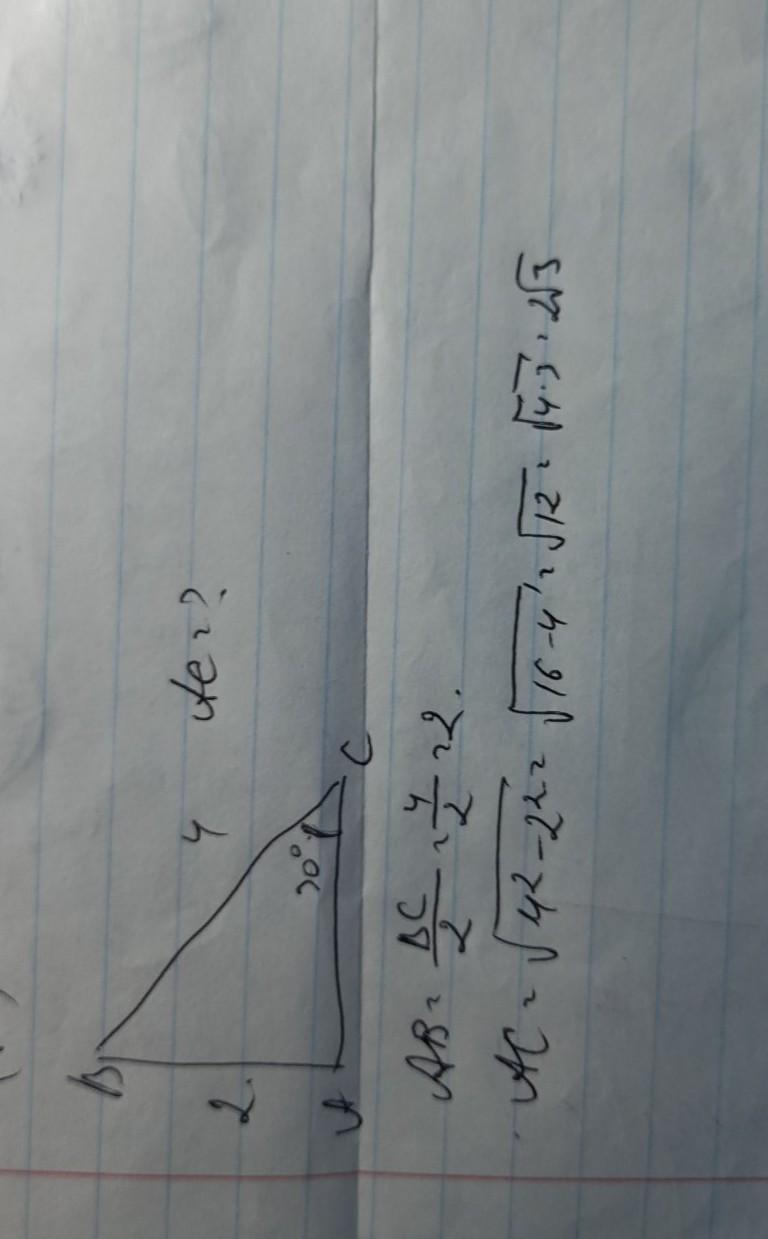 B
4
AC = ?
2.
30°
A
C
AB = BC/2 = 4/2 = 2.
AC = √(4² - 2²) = √(16 - 4) = √12 = √(4·3) = 2√3